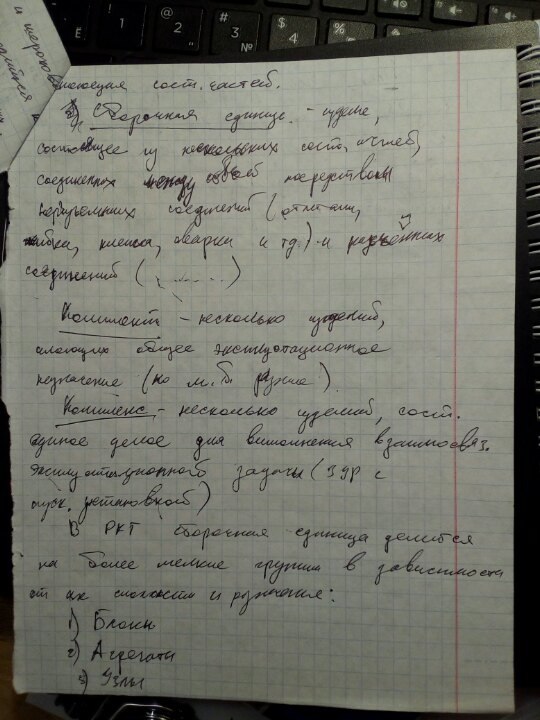 сост. частей.
Сборочная единица - изделие,
состоящее из нескольких сост. частей,
соединенных между собой посредством
неразъемных соединений (
клепка, сварки и т.д.) и разъёмных
соединений (. . . . . .)
Комплект - несколько изделий,
имеющих общее эксплуатационное
назначение (но м.б. разные).
Комплекс - несколько изделий, сост.
единое целое для выполнения взаимосвяз.
эксплуатационной задачи (ЗУР с
пуск. установкой)
В РКТ сборочная единица делится
на более мелкие группы в зависимости
от их сложности и назначения:
1) Блоки
2) Агрегаты
3) Узлы